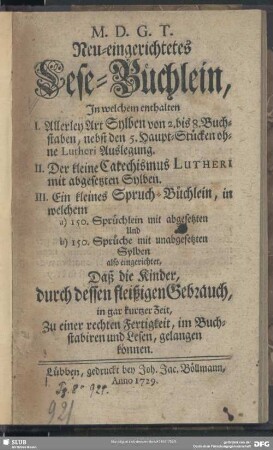 M. D. G. T.
Neu-eingerichtetes
Lese-Büchlein,
In welchem enthalten
I. Allerley Art Sylben von 2. bis 8. Buch-
staben, nebst den 5. Haupt-Stücken oh-
ne Lutheri Auslegung.
II. Der kleine Catechismus LUTHERI
mit abgesetzten Sylben.
III. Ein kleines Spruch-Büchlein, in
welchem
a) 150. Sprüchlein mit abgesetzten
Und
b) 150. Sprüche mit unabgesetzten
Sylben
also eingerichtet,
Daß die Kinder,
durch dessen fleißigen Gebrauch,
in gar kurtzer Zeit,
Zu einer rechten Fertigkeit, im Buch-
stabiren und Lesen, gelangen
können.
Lübben, gedruckt bey Joh. Jac. Böllmann,
Anno 1729.
921
SLUB
DFG